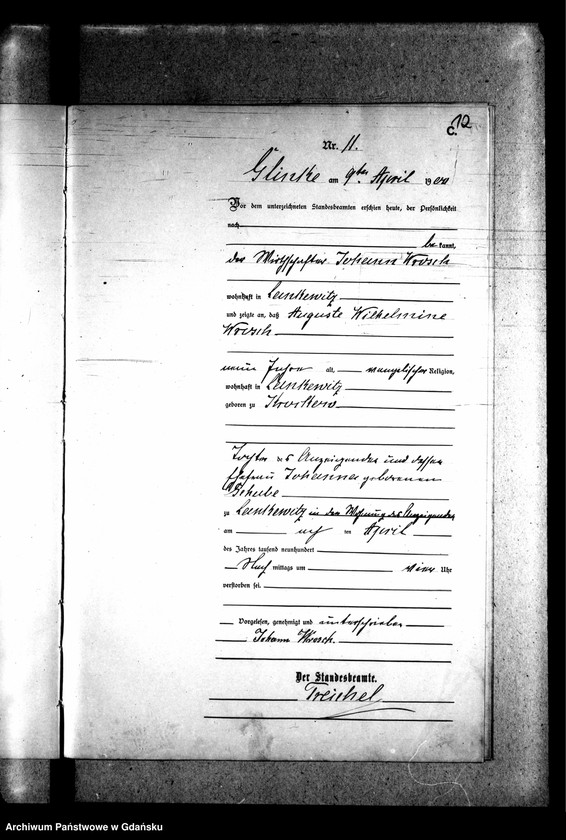 C. 12
Nr. 11.
Glinke am 9ten April 1900
Vor dem unterzeichneten Standesbeamten erschien heute, der Persönlichkeit
nach
be kannt,
der Wirthschafter Johann Worsch
wohnhaft in Lankewitz
und zeigte an, daß Auguste Wilhelmine
Worsch
neun Jahre alt, evangelischer Religion,
wohnhaft in Lankewitz
geboren zu
Tochter des Anzeigenden und dessen
Ehefrau Johanna geborenen
zu Lankewitz in der Wohnung des Anzeigenden
am ten April
des Jahres tausend neunhundert
Nach mittags um vier Uhr
verstorben sei.
Vorgelesen, genehmigt und unterschrieben
Johann Worsch.
Der Standesbeamte.
Treichel
Archiwum Państwowe w Gdańsku